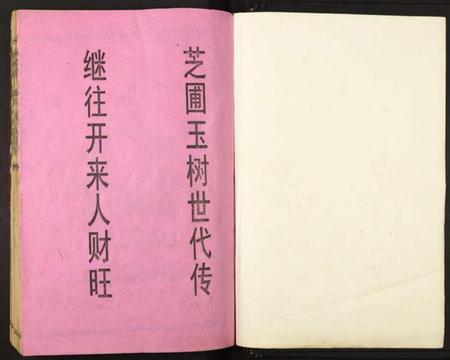 芝圃玉树世代传
继往开来人财旺